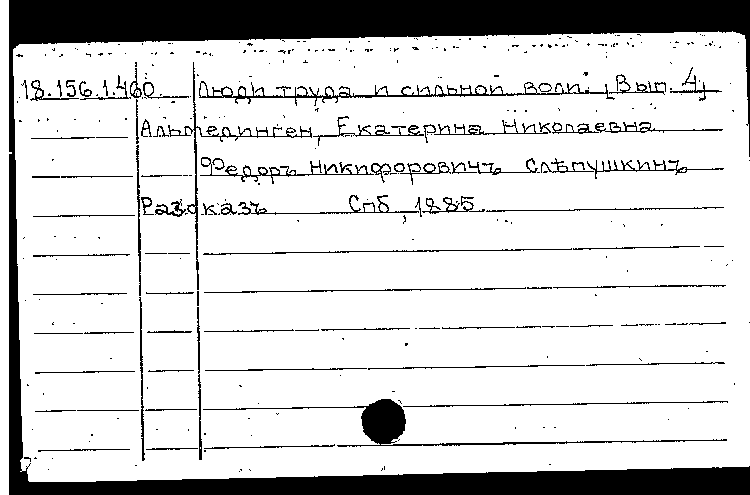 18.156.1.460 Люди труда и сильной воли. [Вып. 4]
Альмединген, Екатерина Николаевна
Федоръ Никифоровичъ Слѣпушкинъ
Разсказъ Спб, 1885.